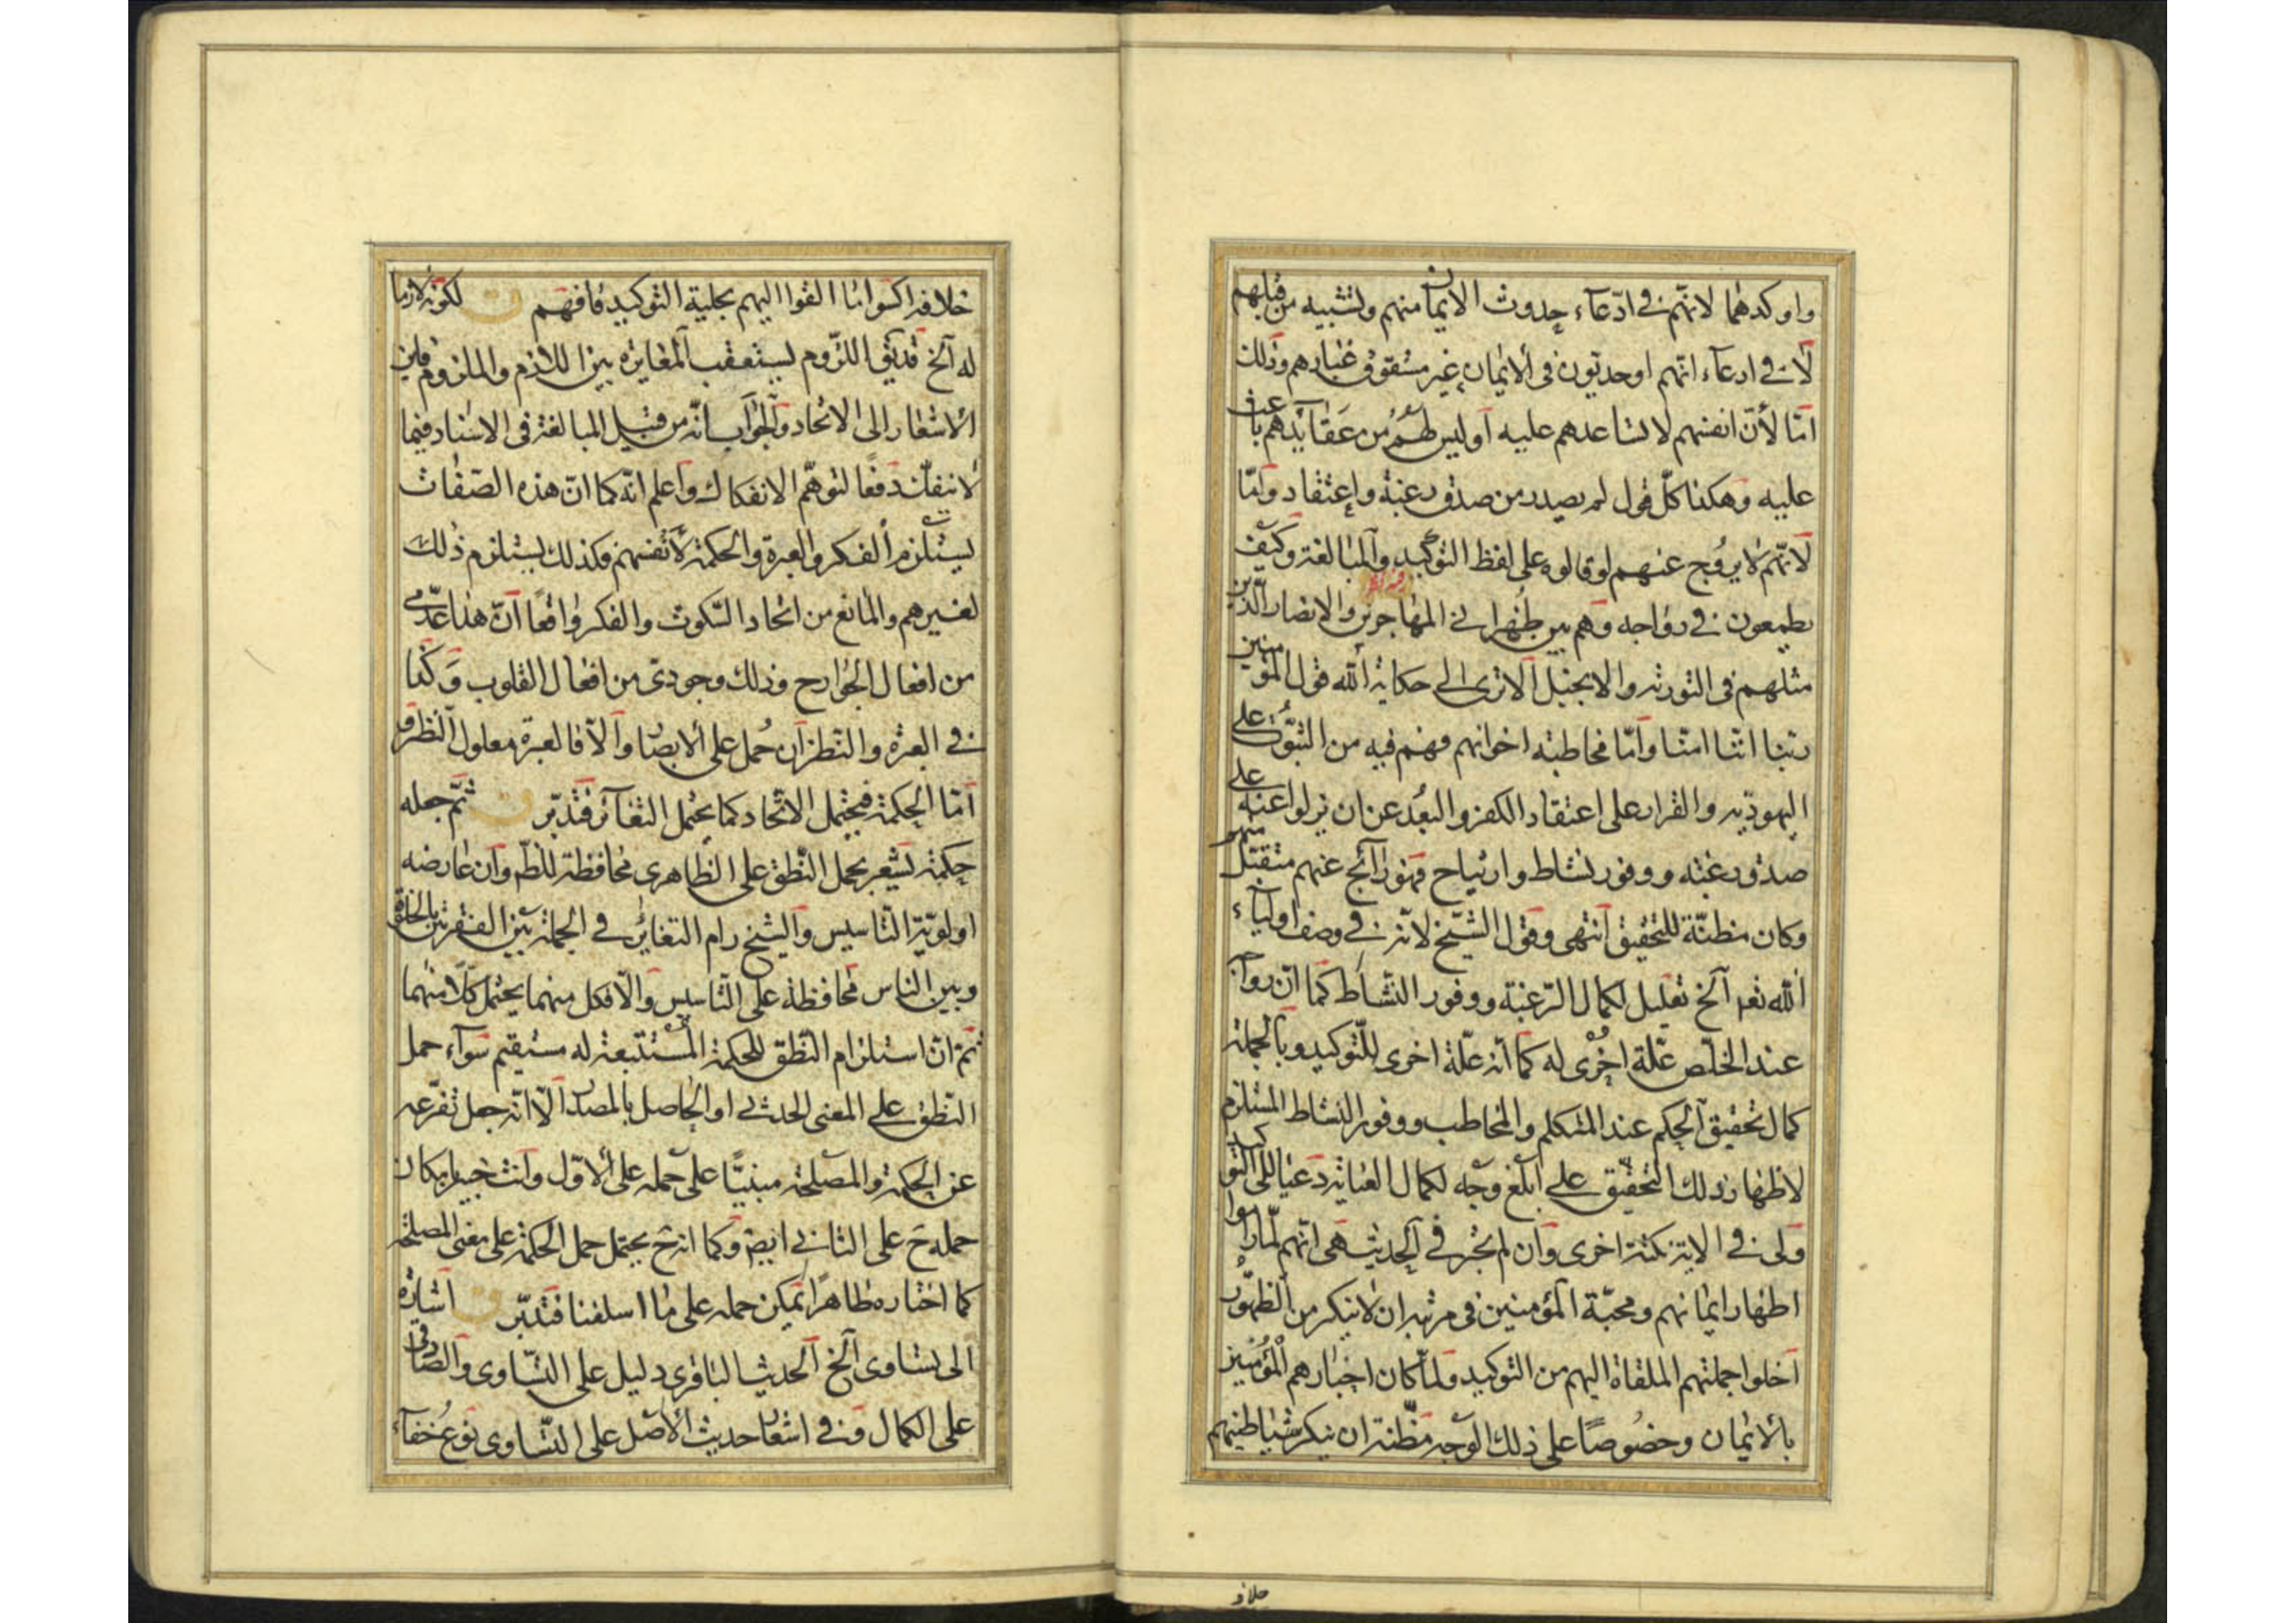 واوكدهما لانهم في ادعاء حدوث الايمان منهم ولتشبيه من قبلهم
لا في ادعاء انهم اوحديون في الايمان غير مشقوق غبارهم وذلك
امّا لأنّ انفسهم لا تساعدهم عليه او ليس لهم من عقائدهم باعث
عليه وهكذا كلّ قول لم يصدر من صدق رغبة واعتقاد وامّا
لانهم لا يروج عنهم لو قالوه على لفظ التوكيد والمبالغة وكيف
يطمعون في رواجه وهم بين ظهراني المهاجرين والانصار الذين
مثلهم في التورته والانجيل الا ترى الى حكاية الله قول المؤمنين
ربنا اننا امنا وامّا مخاطبة اخوانهم فهم فيه من الثبوت على
اليهوديه والقرار على اعتقاد الكفر والبعد عن ان يزلوا عنه على
صدق رغبه ووفور نشاط وارتياح فهو رائج عنهم متقبل منهم
وكان مظنّة للتحقيق انتهى وقول الشيخ لانه في وصف اولياء
الله تعم الخ تعليل لكمال الرغبة ووفور النشاط كما انّ رواجه
عند الخلّص علّة اخرى له كما انه علّة اخرى للتوكيد وبالجملة
كمال تحقيق الحكم عند المتكلم والمخاطب ووفور النشاط المستلزم
لاظهار ذلك التحقيق على ابلغ وجه لكمال العناية دعتا الى التوكيد
ولى في الاية نكتة اخرى وان لم تجر في الحديث هي انّهم لمّا راموا
اظهار ايمانهم ومحبّة المؤمنين في مرتبه ان لا ينكر من الظهور
اخلوا جملتهم الملقاة اليهم من التوكيد ولما كان اخبارهم المؤمنين
بالايمان وخصوصًا على ذلك الوجه مظنة ان ينكر شياطينهم
خلافه
خلافه اكسوا ما القوا اليهم بحلية التوكيد فافهم ن لكونه لازما
له الخ قد بقى اللزوم ليستعقب المغايره بين اللازم والملزوم فاين
الاشعار الى الاتحاد والجواب انّه من قبيل المبالغة في الاسناد فيما
لا ينفك دفعًا لتوهّم الانفكاك واعلم انّه كما انّ هذه الصفات
يستلزم الفكر والعبرة والحكمة لانفسهم فكذلك يستلزم ذلك
لغيرهم والمانع من اتحاد السكوت والفكر واقعًا انّ هذا عدمي
من افعال الجوارح وذلك وجودي من افعال القلوب وكذا
في العبرة والنظر ان حمل على الابصار والّا فالعبرة معلول النظر و
امّا الحكمة فيحتمل الاتحاد كما يحتمل التغاير فتدبّر ن ثمّ جعله
حكمة يشعر بحمل النطق على الظاهرى محافظة للظم وان عارضه
اولويّة التاسيس والشيخ رام التغاير في الجملة بين الفقرتين بالخلق
وبين الناس محافظة على التاسيس والّا فكل منهما يحتمل كلّا منهما
ثمّ انّ استلزام النطق للحكمة المستتبعة له مستقيم سواء حمل
النطق على المعنى الحدثى او الحاصل بالمصدر الّا انّه جعل تفرّعه
عن الحكمة والمصلحة مبنيًّا على حمله على الاوّل وانت خبير بامكان
حمله ح على الثاني ايضم وكما انه ح يحتمل حمل الحكمة على معنى المصلحة
كما اختاره ظاهرا يمكن حمله على ما اسلفنا فتدبّر ن اشارة
الى تساوى الخ الحديث الباقرى دليل على التساوى والصادقى
على الكمال وفي اشعار حديث الاصل على التساوى نوع خفاء